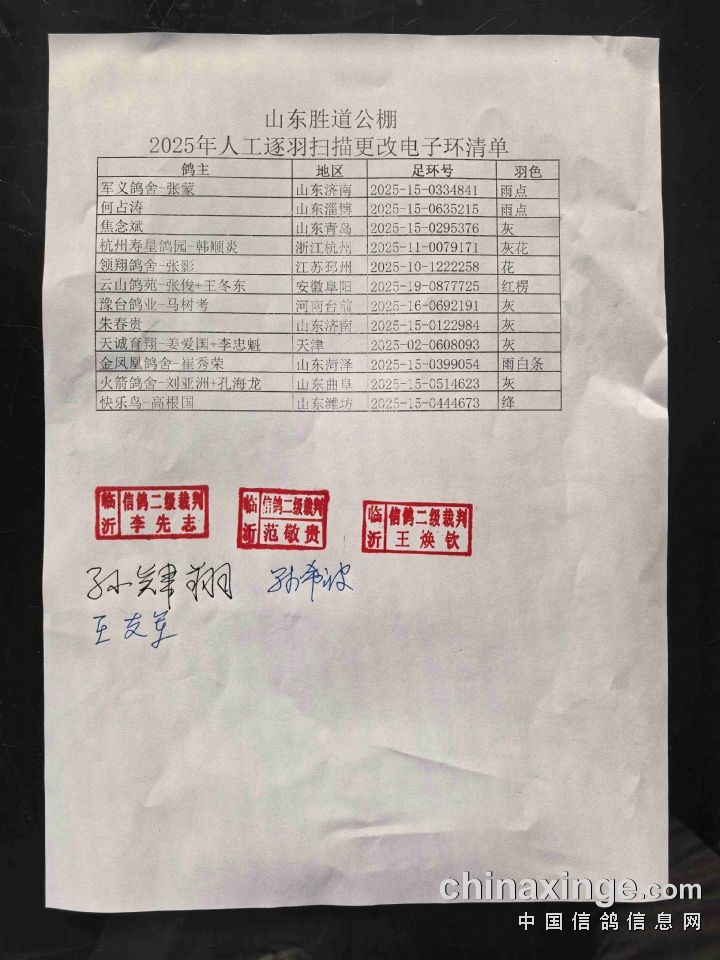 山东胜道公棚
2025年人工逐羽扫描更改电子环清单
鸽主 地区 足环号 羽色
军义鸽舍-张蒙 山东济南 2025-15-0334841 雨点
何占涛 山东淄博 2025-15-0635215 雨点
焦念斌 山东青岛 2025-15-0295376 灰
杭州寿星鸽园-韩顺炎 浙江杭州 2025-11-0079171 灰花
领翔鸽舍-张影 江苏邳州 2025-10-1222258 花
云山鸽苑-张俊+王冬东 安徽阜阳 2025-19-0877725 红楞
豫台鸽业-马树考 河南台前 2025-16-0692191 灰
朱春贵 山东济南 2025-15-0122984 灰
天诚育翔-姜爱国+李忠魁 天津 2025-02-0608093 灰
金凤凰鸽舍-崔秀荣 山东菏泽 2025-15-0399054 雨白条
火箭鸽舍-刘亚洲+孔海龙 山东曲阜 2025-15-0514623 灰
快乐鸟-高根国 山东潍坊 2025-15-0444673 绛
临沂 信鸽二级裁判 李先志
临沂 信鸽二级裁判 范敬贵
临沂 信鸽二级裁判 王焕钦
孙 翔 孙希波
王友军
chinaxinge.com
中国信鸽信息网